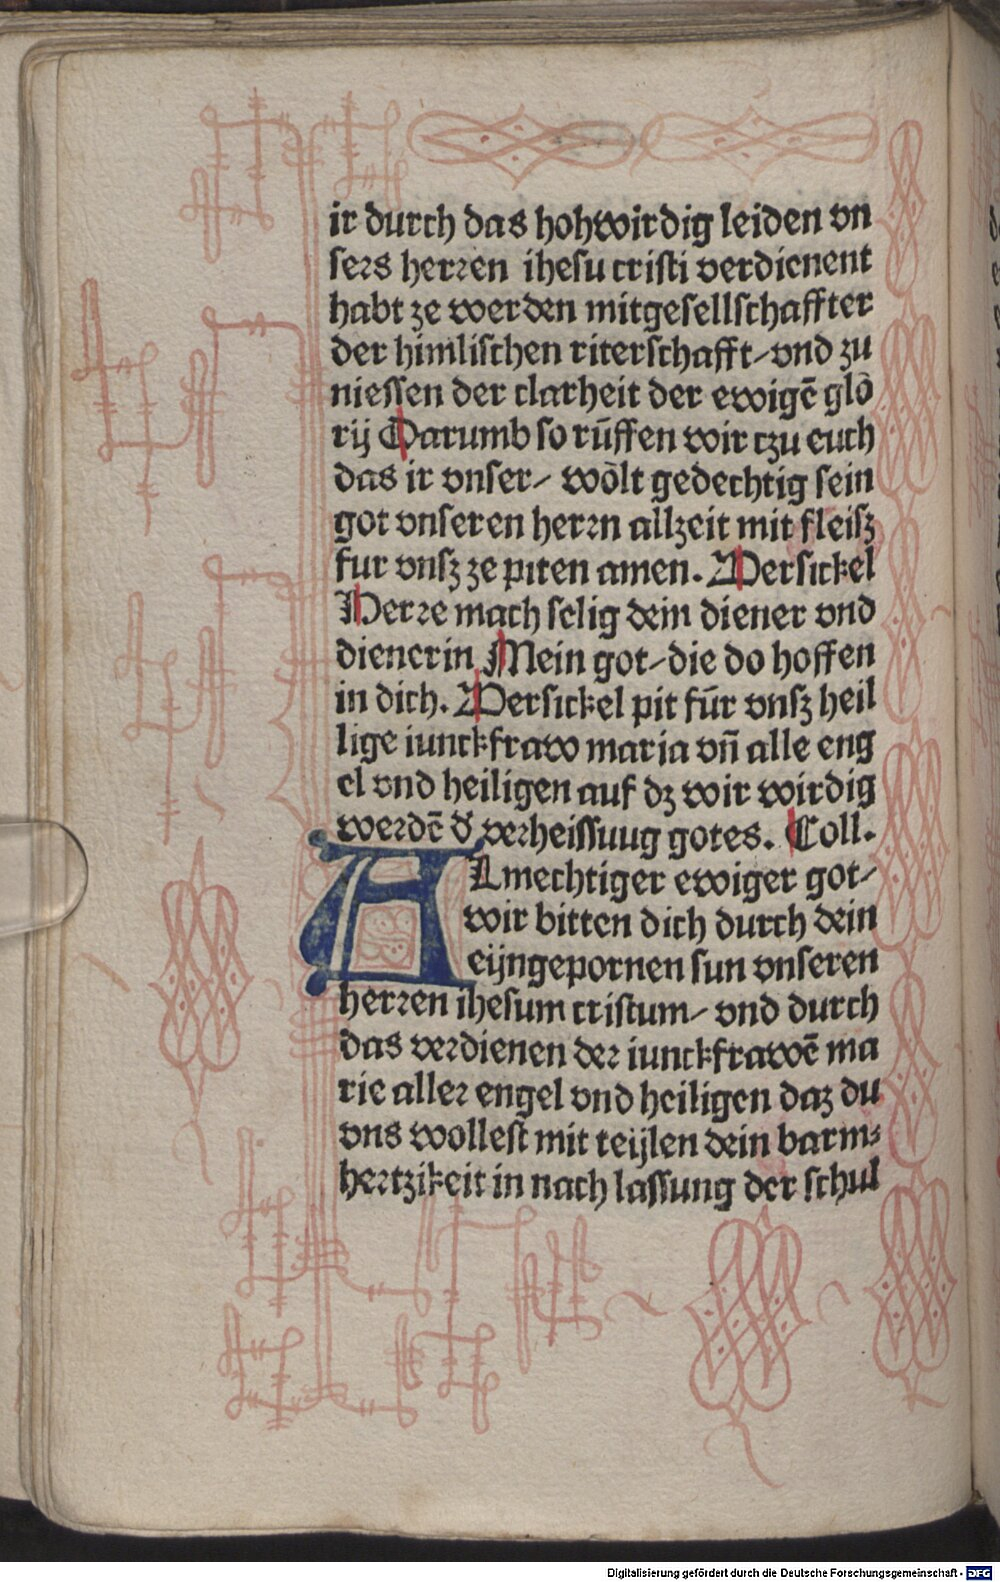 ir durch das hohwirdig leiden vn
sers herren ihesu cristi verdienent
habt ze werden mitgesellschaffter
der himlischen riterschafft/ vnd zu
niessen der clarheit der ewigē glo
rij Darumb so rūffen wir czu euch
das ir vnser/ wölt gedechtig sein
got vnseren herrn allzeit mit fleisz
fur vnsz ze piten amen. Versickel
Herre mach selig dein diener vnd
dienerin Mein got/ die do hoffen
in dich. Versickel pit für vnsz heil
lige iunckfraw maria vñ alle eng
el vnd heiligen auf dz wir wirdig
werdē d̕ verheissuug gotes. Coll.
ALmechtiger ewiger got/
wir bitten dich durch dein
eijngepornen sun vnseren
herren ihesum cristum/ vnd durch
das verdienen der iunckfrawē ma
rie aller engel vnd heiligen daz du
vns wollest mit teijlen dein barm⸗
hertzikeit in nach lassung der schul
Digitalisierung gefördert durch die Deutsche Forschungsgemeinschaft - DFG